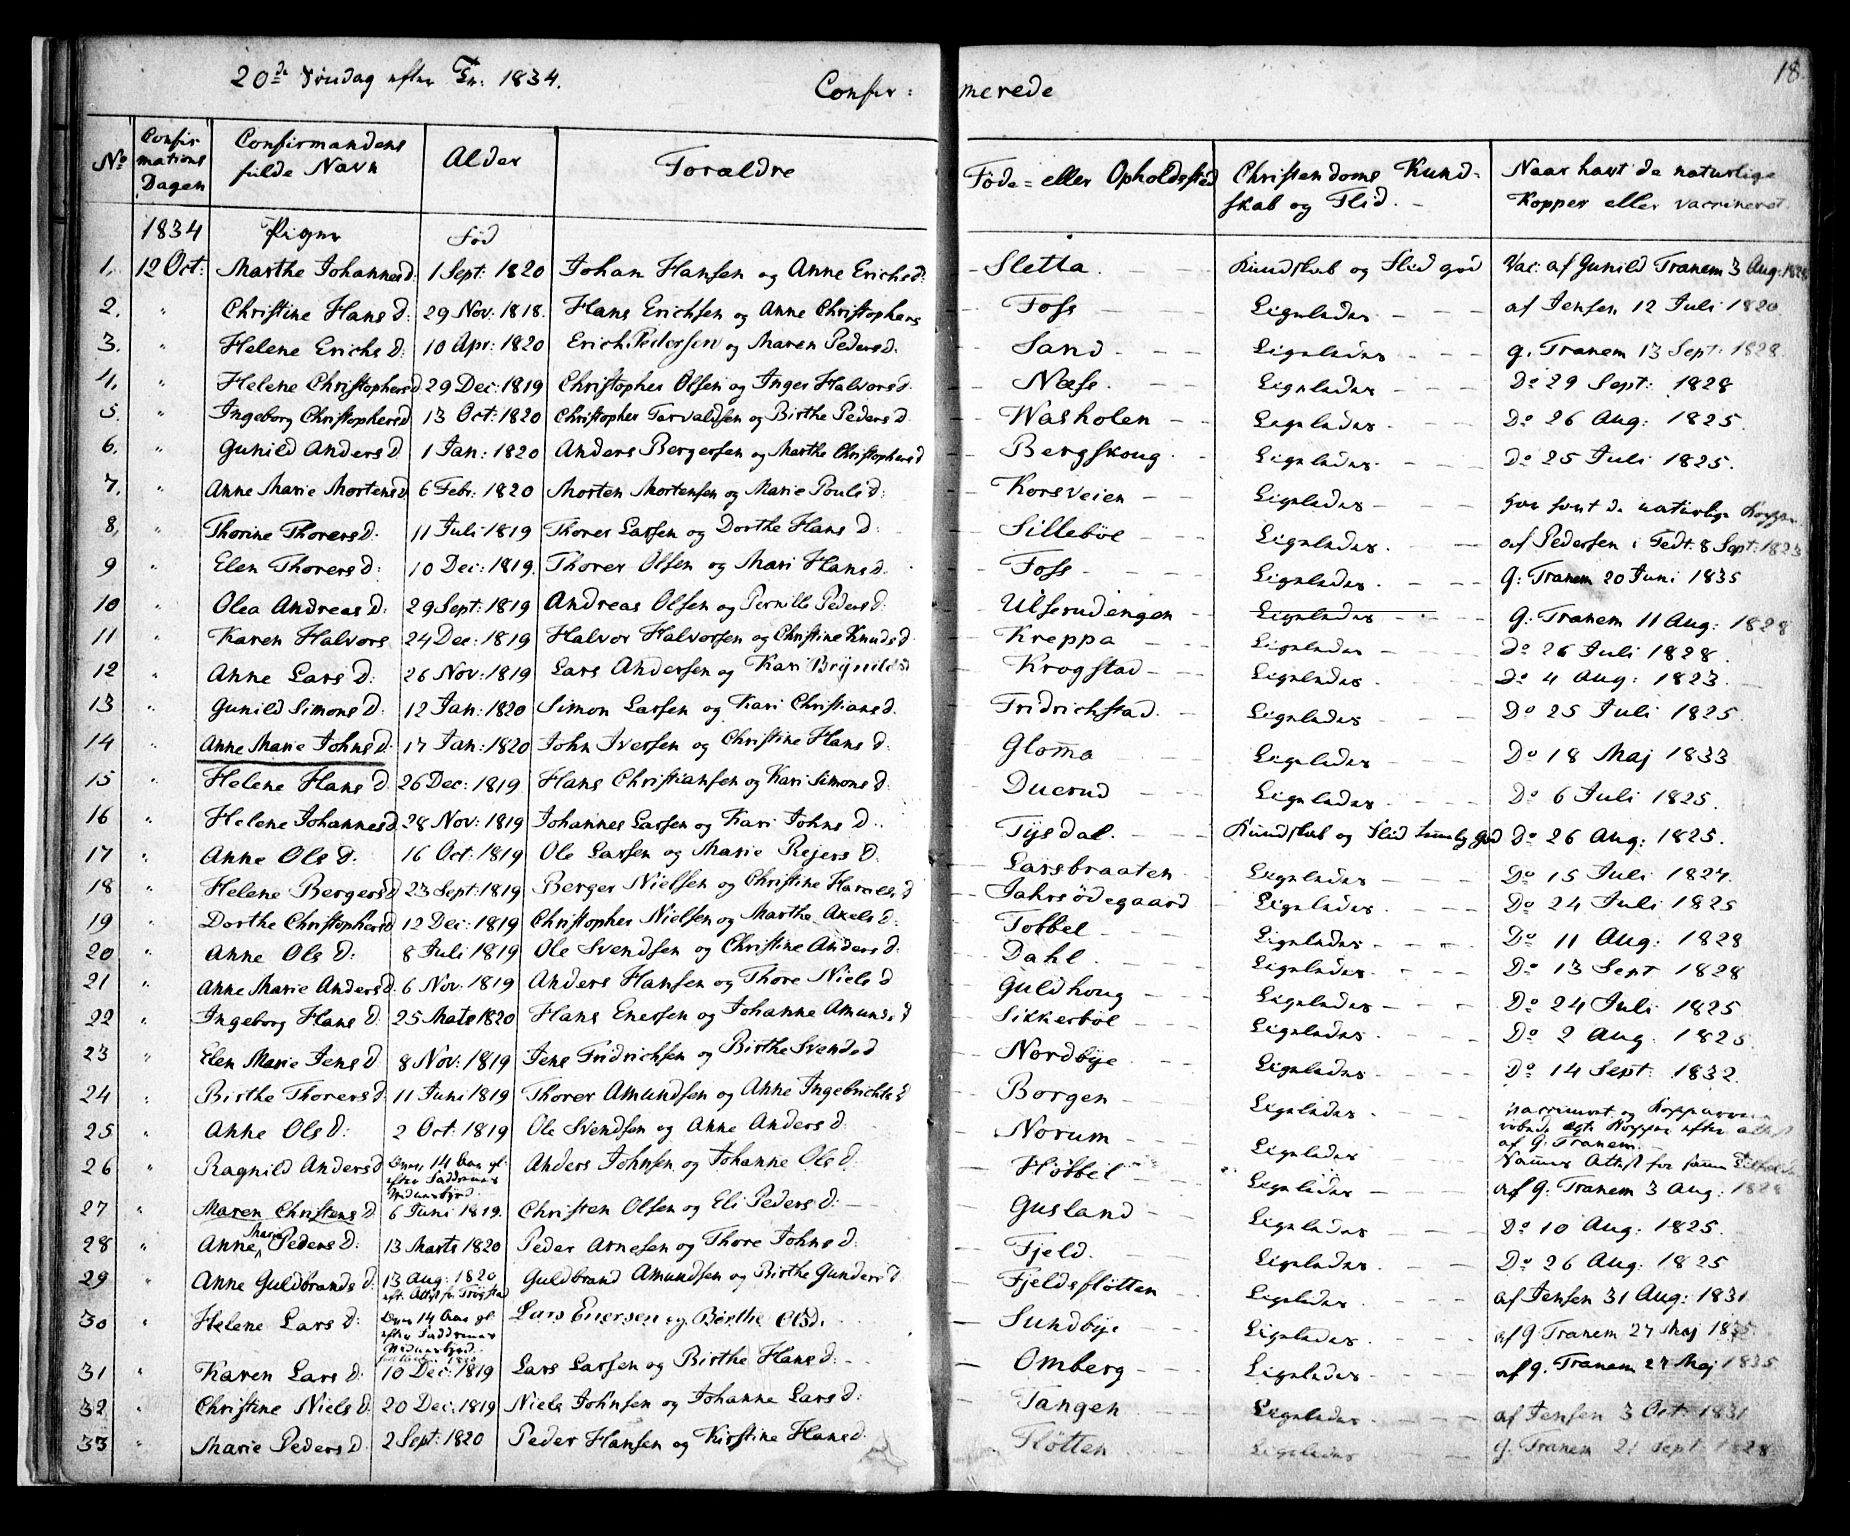 20de Søndag efter Tr: 1834.
Confir: merede
18
No
Confirmations Dagen
Confirmandens fulde Navn
Alder
Forældre
Føde- eller Opholdssted
Christendoms Kundskab og Flid.
Naar havt de naturlige Kopper eller vaccineret
1834 Piger Fød
1. 12 Oct: Marthe Johannesd: 1 Sept: 1820 Johan Hansen og Anne Erichsd: Sletta. Kundskab og Flid god Vac: af Gunild Tranem 3 Aug: 1828
2. " Christine Hansd: 29 Nov: 1818. Hans Erichsen og Anne Christophers Foss Ligeledes af Jensen 12 Juli 1820
3. " Helene Erichsd: 10 Apr: 1820 Erich Pedersen og Maren Pedersd. Sand Ligeledes g. Tranem 13 Sept: 1828
4. " Helene Christophersd 29 Dec: 1819 Christopher Olsen og Inger Halvorsd. Næss. Ligeledes Do 29 Sept: 1828
5. " Ingeborg Christophersd 13 Oct: 1820 Christopher Torvaldsen og Birthe Pedersd. Washolen Ligeledes Do 26 Aug: 1825.
6. " Gunild Andersd 1 Jan: 1820 Anders Bergersen og Marthe Christophersd Bergskoug Ligeledes Do 25 Juli 1825.
7. " Anne Marie Mortensd 6 Febr: 1820 Morten Mortensen og Marie Poulsd: Korsveien Ligeledes har havt de naturlige Kopper
8. " Thorine Thorersd. 11 Juli 1819 Thorer Larsen og Dorthe Hansd: Sillebøl Ligeledes. af Pedersen i Fedt. 8 Sept: 1823
9 " Elen Thorersd: 10 Dec: 1819. Thorer Olsen og Mari Hansd. Foss Ligeledes. G: Tranem 20 Juni 1835
10 " Olea Andreasd: 29 Sept: 1819 Andreas Olsen og Pernille Pedersd: Ulserudengen Ligeledes G: Tranem 11 Aug: 1828
11 " Karen Halvors 24 Dec: 1819 Halvor Halvorsen og Christine Knudsd. Kreppa Ligeledes Do 26 Juli 1828.
12 " Anne Larsd: 26 Nov: 1819 Lars Andersen og Kari Brynildsd Krogstad Ligeledes Do 4 Aug: 1823.
13 " Gunild Simonsd: 12 Jan: 1820 Simon Larsen og Kari Christiansd. Fridrichstad. Ligeledes Do 25 Juli 1825.
14 " Anne Marie Johnsd: 17 Jan: 1820 John Iversen og Christine Hansd: Glomma Ligeledes Do 18 Maj 1833
15 " Helene Hansd: 26 Dec: 1819 Hans Christiansen og Kari Simonsd: Duerud Ligeledes Do 6 Juli 1825.
16 " Helene Johannesd 28 Nov: 1819 Johannes Larsen og Kari Johnsd: Tysdal. Kundskab og Flid temmelig god Do 26 Aug: 1825.
17 " Anne Olsd: 16 Oct: 1819 Ole Larsen og Marie Rejersd: Larsbraaten Ligeledes Do 15 Juli 1824.
18 " Helene Bergersd 23 Sept: 1819 Berger Nielsen og Christine Jahrsødegaard Ligeledes. Do 24 Juli 1825
19 " Dorthe Christophersd 12 Dec: 1819 Christopher Nielsen og Marthe Axelsd: Tobbel Ligeledes Do 11 Aug: 1828
20 " Anne Olsd: 8 Juli 1819 Ole Svendsen og Christine Andersd: Dahl Ligeledes Do 13 Sept 1828
21 " Anne Marie Andersd. 6 Nov: 1819 Anders Hansen og Thore Nielsd Guldhoug Ligeledes Do 24 Juli 1825
22 " Ingeborg Hansd: 25 Mats 1820 Hans Enersen og Johanne Amundsd Sikkerbøl Ligeledes. Do 2 Aug: 1825.
23 " Elen Marie Jensd: 8 Nov: 1819 Jens Fridrichsen og Birthe Svendsd Nordbye Ligeledes Do 14 Sept: 1832.
24 " Birthe Thorersd: 11 Juni 1819 Thorer Amundsen og Anne Ingebrichtsd Borgen Ligeledes vaccineret og
25 " Anne Olsd: 2 Oct: 1819 Ole Svendsen og Anne Andersd: Norum Ligeledes af G: Tranem
26 " Ragnild Andersd Over 14 Aar gl. efter Faddernes Vidnesbyrd. Anders Johnsen og Johanne Olsd: Høbbel Ligeledes af G: Tranem 3 Aug: 1828
27 " Maren Christensd: 6 Juni 1819. Christen Olsen og Eli Pedersd: Gusland Ligeledes Do 10 Aug: 1825.
28 " Anne Marie Pedersd: 13 Marts 1820 Peder Arnesen og Thore Johnsd: Fjeld. Ligeledes Do 26 Aug: 1825
29 " Anne Guldbrandsd: 13 Aug: 1820 eft. Attest fra Trøgstad Guldbrand Amundsen og Birthe Gundersd Fjeldsfløtten Ligeledes af Jensen 31 Aug: 1831
30 " Helene Larsd: Over 14 Aar gl. efter Faddernes Vidnesbyrd. Lars Enersen og Børthe Olsd. Sundbye Ligeledes. af G: Tranem 27 Maj 1835
31 " Karen Larsd: 10 Dec: 1819 Lars Larsen og Birthe Hansd: Omberg Ligeledes af G. Tranem 27 Maj 1835
32 " Christine Nielsd: 20 Dec: 1819 Niels Johnsen og Johanne Larsd: Tangen Ligeledes af Jensen 3 Oct: 1831
33 " Marie Pedersd. 2 Sept: 1820 Peder Hansen og Kirstine Hansd: Fløtten Ligeledes G: Tranem 21 Sept 1828